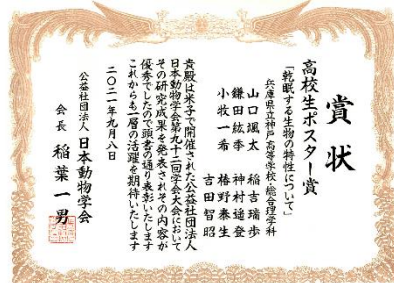 賞状
高校生ポスター賞
「乾眠する生物の特性について」
兵庫県立神戸高等学校・総合理学科
山口颯太　稲吉瑞歩
鎌田紘季　神村遥登
小牧一希　椿野泰生
吉田智昭
貴殿は米子で開催された公益社団法人
日本動物学会第九十二回学会大会において
その研究成果を発表されその内容が
優秀でしたので頭書の通り表彰いたします
これからも一層の活躍を期待いたします
二〇二一年九月八日
公益社団法人 日本動物学会
会長　稲葉一男